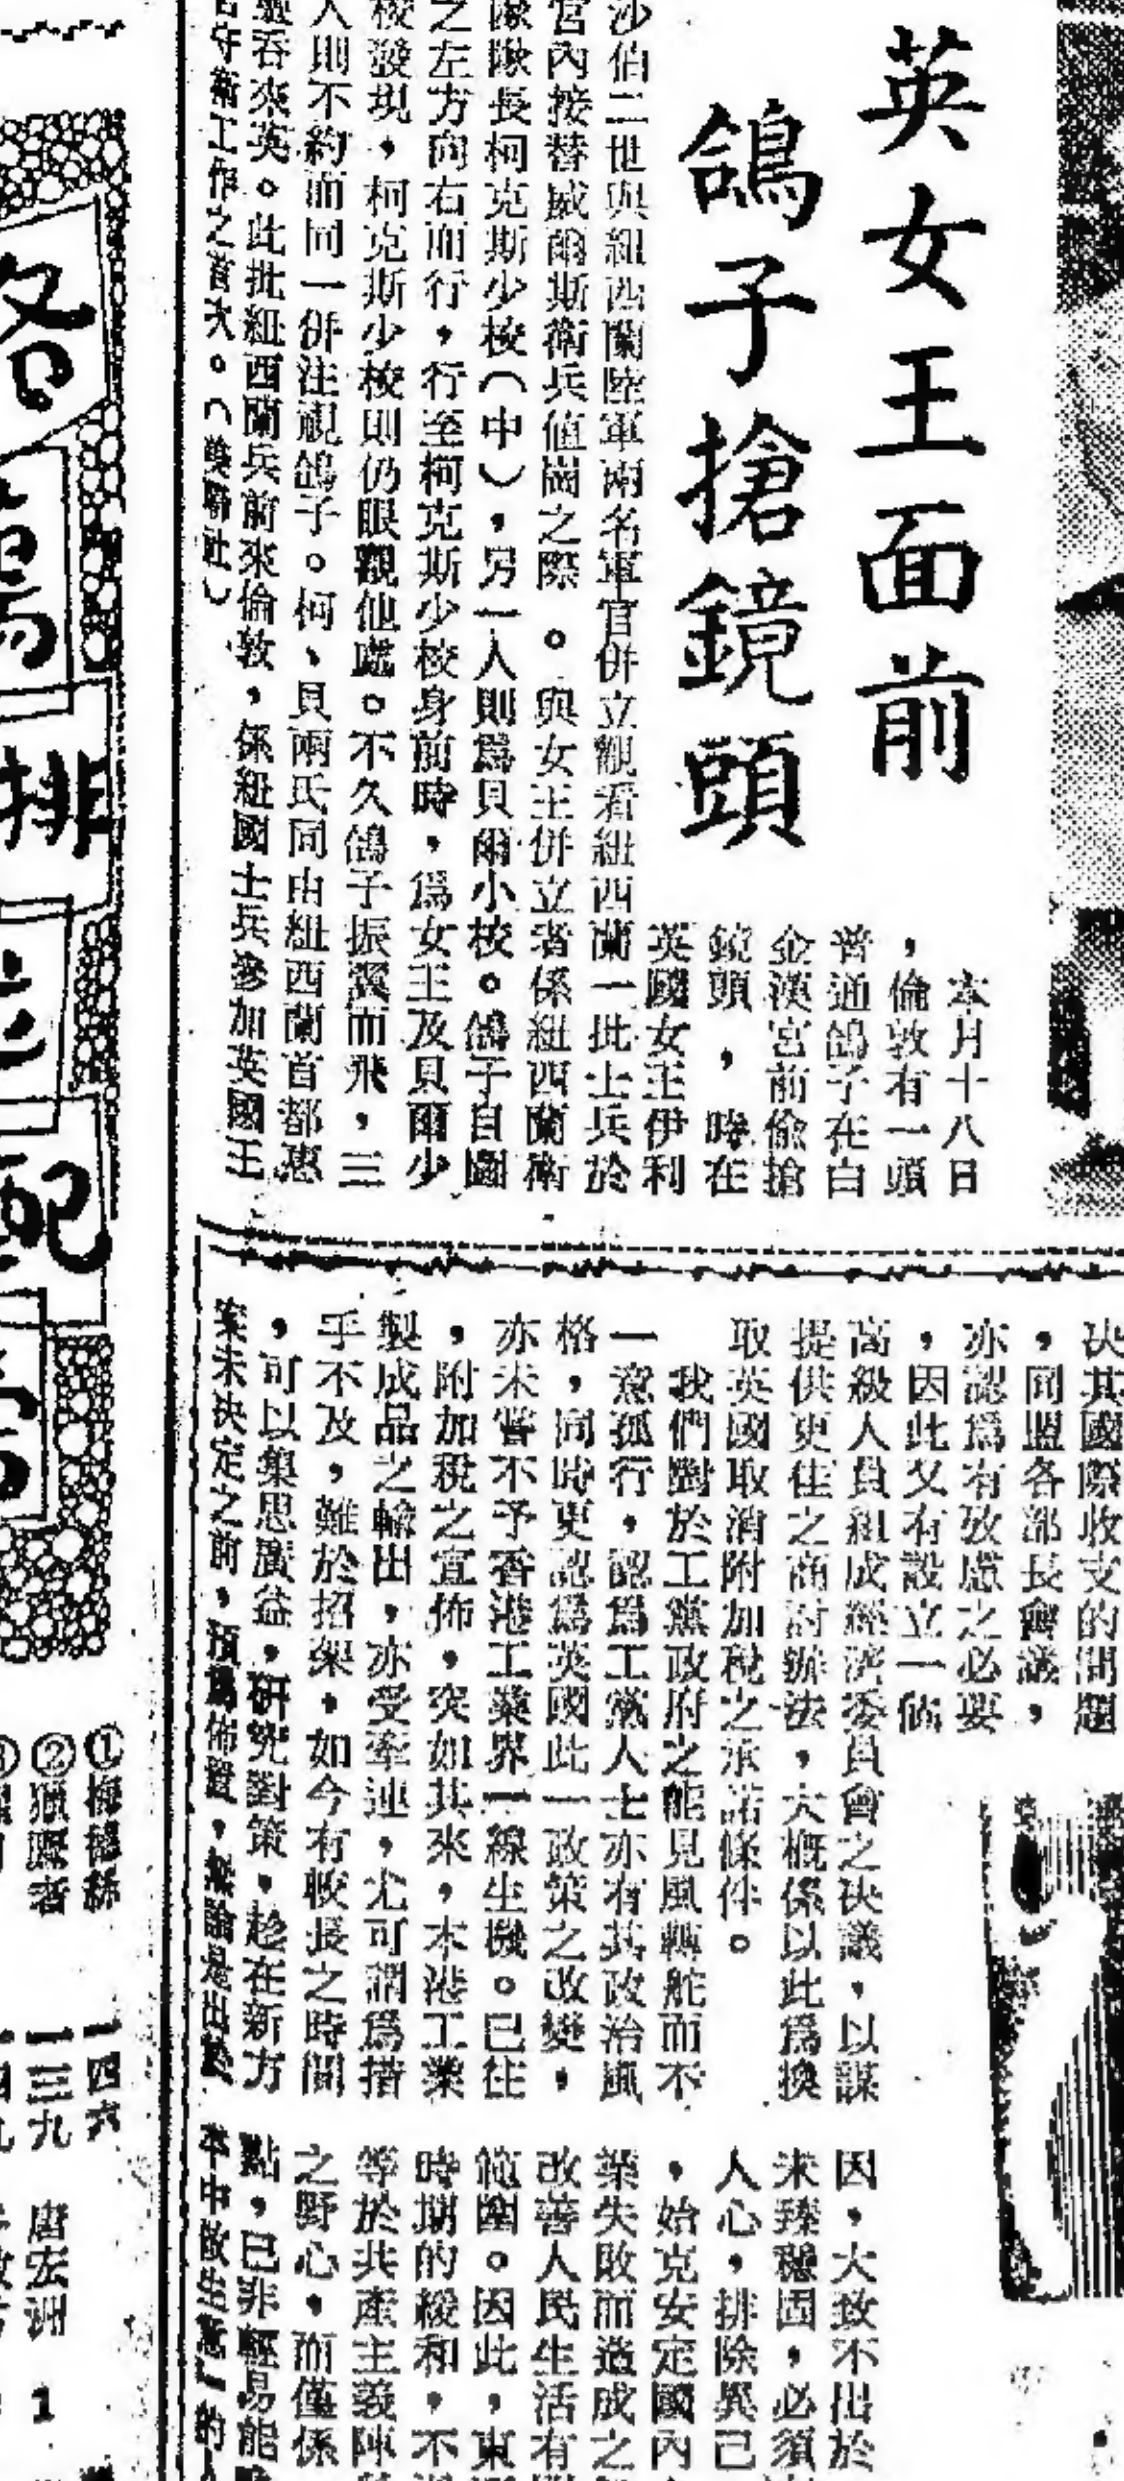 英女王面前
鴿子搶鏡頭
本月十八日
，倫敦有一頭
普通鴿子在白
金漢宮前偷搶
鏡頭，時在
英國女王伊利
沙伯二世與紐西蘭陸軍兩名軍官併立觀看紐西蘭一批士兵於
宮內接替威爾斯衛兵值崗之際。與女王併立者係紐西蘭衛
隊隊長柯克斯少校（中），另一人則爲貝爾小校。鴿子自圖
之左方向右而行，行至柯克斯少校身前時，爲女王及貝爾少
校發現，柯克斯少校則仍眼觀他處。不久鴿子振翼而飛，三
人則不約而同一併注視鴿子。柯、貝兩氏同由紐西蘭首都惠
吞來英。此批紐西蘭兵前來倫敦，係紐國士兵參加英國王
守衛工作之首次。（英聯社）
決其國際收支的問題
，同盟各部長會議，
亦認爲有攷慮之必要
，因此又有設立一個
高級人員組成經濟委員會之决議，以謀
提供更佳之商討辦法，大概係以此爲換
取英國取消附加稅之承諾條件。
我們對於工黨政府之能見風轉舵而不
一意孤行，認爲工黨人士亦有其政治風
格，同時更認爲英國此一政策之改變，
亦未嘗不予香港工業界一線生機。已往
，附加稅之宣佈，突如其來，本港工業
製成品之輸出，亦受牽連，尤可謂爲措
手不及，難於招架，如今有較長之時間
，可以集思廣益，研究對策，趁在新方
案未決定之前，預爲佈置，無論是出於
因，大致不出於
未臻穩固，必須
人心，排除異己
，始克安定國內
業失敗而造成之
改善人民生活有
範圍。因此，東
時期的緩和，不
等於共產主義陣
之野心，而僅係
點，已非輕易能
本中做生意」的人
排
配
①梅德絲
一四六
②獵豔者
一三九
唐宏洲
1